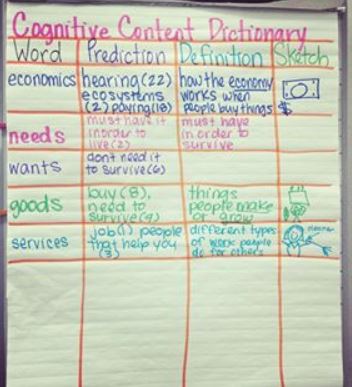 Cognitive Content Dictionary
Word Prediction Definition Sketch
economics hearing (22) how the economy
ecosystems works when
(2) paying (18) people buy things $
needs must have it must have
in order to in order to
live (2) survive
wants don't need it
to survive (6)
goods buy (8), things
need to people make
survive (9) or grow
services job (1) people different types
that help you of work people
(3) do for others